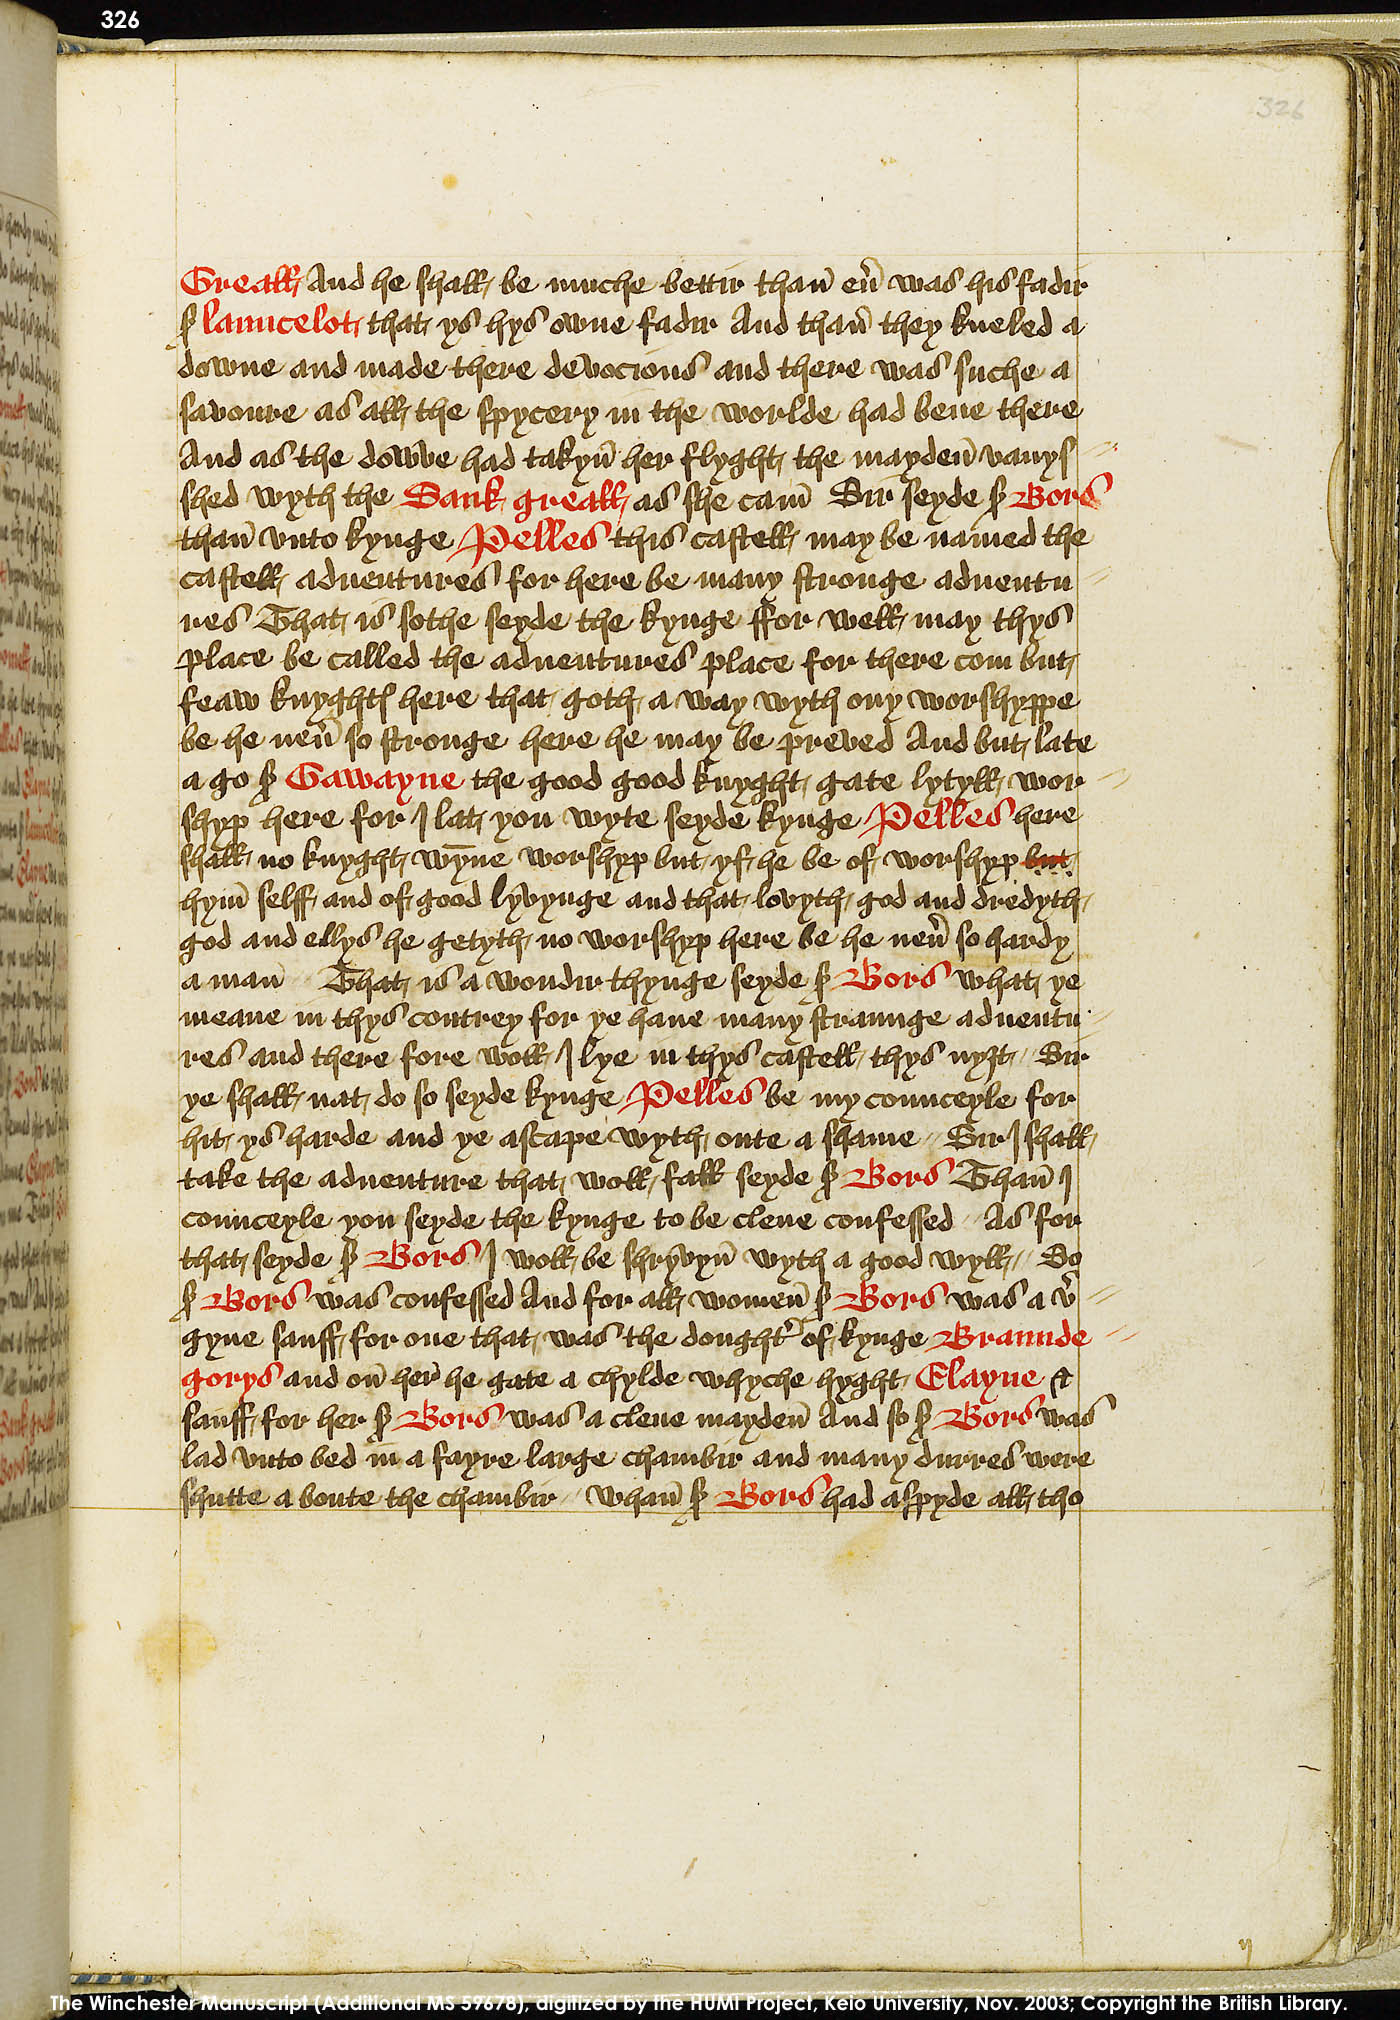 326
326
Greall And he shall be muche bettir than̄ eu͛ was his fadir
S͛ launcelot that ys hys owne fadir And than̄ they kneled a
downe and made there devocions and there was suche a
savoure as all the spycery in the worlde had bene there
And as the dowve had takyn̄ her flyght the mayden̄ vanys
shed wyth the Sank greall as she cam̄ Sir seyde S͛ Bors
than̄ vnto kynge Pelles this castell may be named the
castell adventures for here be many stronge adventu
res That is sothe seyde the kynge ffor well may thys
place be called the adventures place for there com but
feaw knyghtꝭ here that goth a way wyth ony worshyppe
be he neu͛ so stronge here he may be preved And but late
a go S͛ Gawayne the good good knyght gate lytyll wor
shyp here for I lat you wyte seyde kynge Pelles here
shall no knyght wȳne worshyp but yf he be of worshyp but
hym̄ selff and of good lyvynge and that lovyth god and dredyth
god and ellys he getyth no worshyp here be he neu͛ so hardy
a man̄ That is a wondir thynge seyde S͛ Bors what ye
meane in thys contrey for ye have many straunge adventu
res and there fore woll I lye in thys castell thys nyȝt // Sir
ye shall nat do so seyde kynge Pelles be my counceyle for
hit ys harde and ye ascape wyth oute a shame // Sir I shall
take the adventure that woll fall seyde S͛ Bors Than̄ I
counceyle you seyde the kynge to be clene confessed // As for
that seyde S͛ Bors I woll be shryvyn̄ wyth a good wyll // So
S͛ Bors was confessed And for all women̄ S͛ Bors was a v͛
gyne sauff for one that was the dought͛ of kynge Braunde
gorys and on̄ her he gate a chylde whyche hyght Elayne &
sauff for her S͛ Bors was a clene mayden̄ And so S͛ Bors was
lad vnto bed in̄ a fayre large chambir and many durres were
shutte a boute the chambir // Whan̄ S͛ Bors had aspyde all tho
The Winchester Manuscript (Additional MS 59678), digitized by the HUMI Project, Keio University, Nov. 2003; Copyright the British Library.